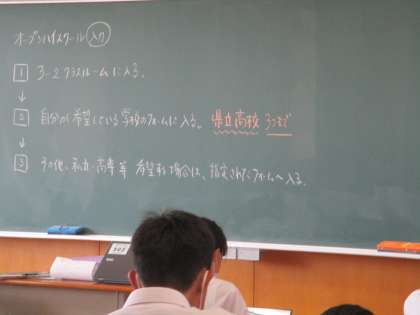 オープンハイスクール 入力
1 3-2クラスルームに入る。
↓
2 自分が希望している学校のフォームに入る。 県立高校 3つまで
↓
3 その他、私立・高専等 希望する場合は、指定されたフォームへ入る。